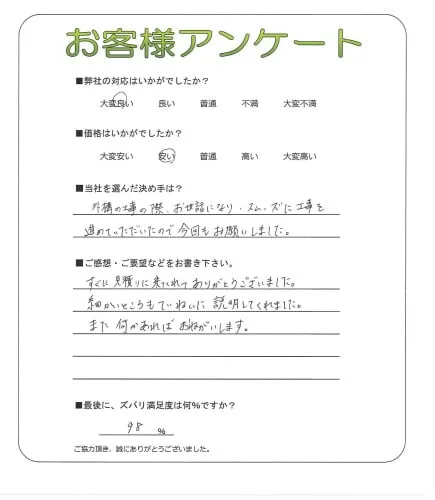 お客様アンケート
■弊社の対応はいかがでしたか？
大変良い 良い 普通 不満 大変不満
■価格はいかがでしたか？
大変安い 安い 普通 高い 大変高い
■当社を選んだ決め手は？
外構の工事の際、お世話になり、スムーズに工事を
進めていただいたので今回もお願いしました。
■ご感想・ご要望などをお書き下さい。
すぐに見積りに来てくれてありがとうございました。
細かいところもていねいに説明してくれました。
また何かあればおねがいします。
■最後に、ズバリ満足度は何%ですか？
98 %
ご協力頂き、誠にありがとうございました。